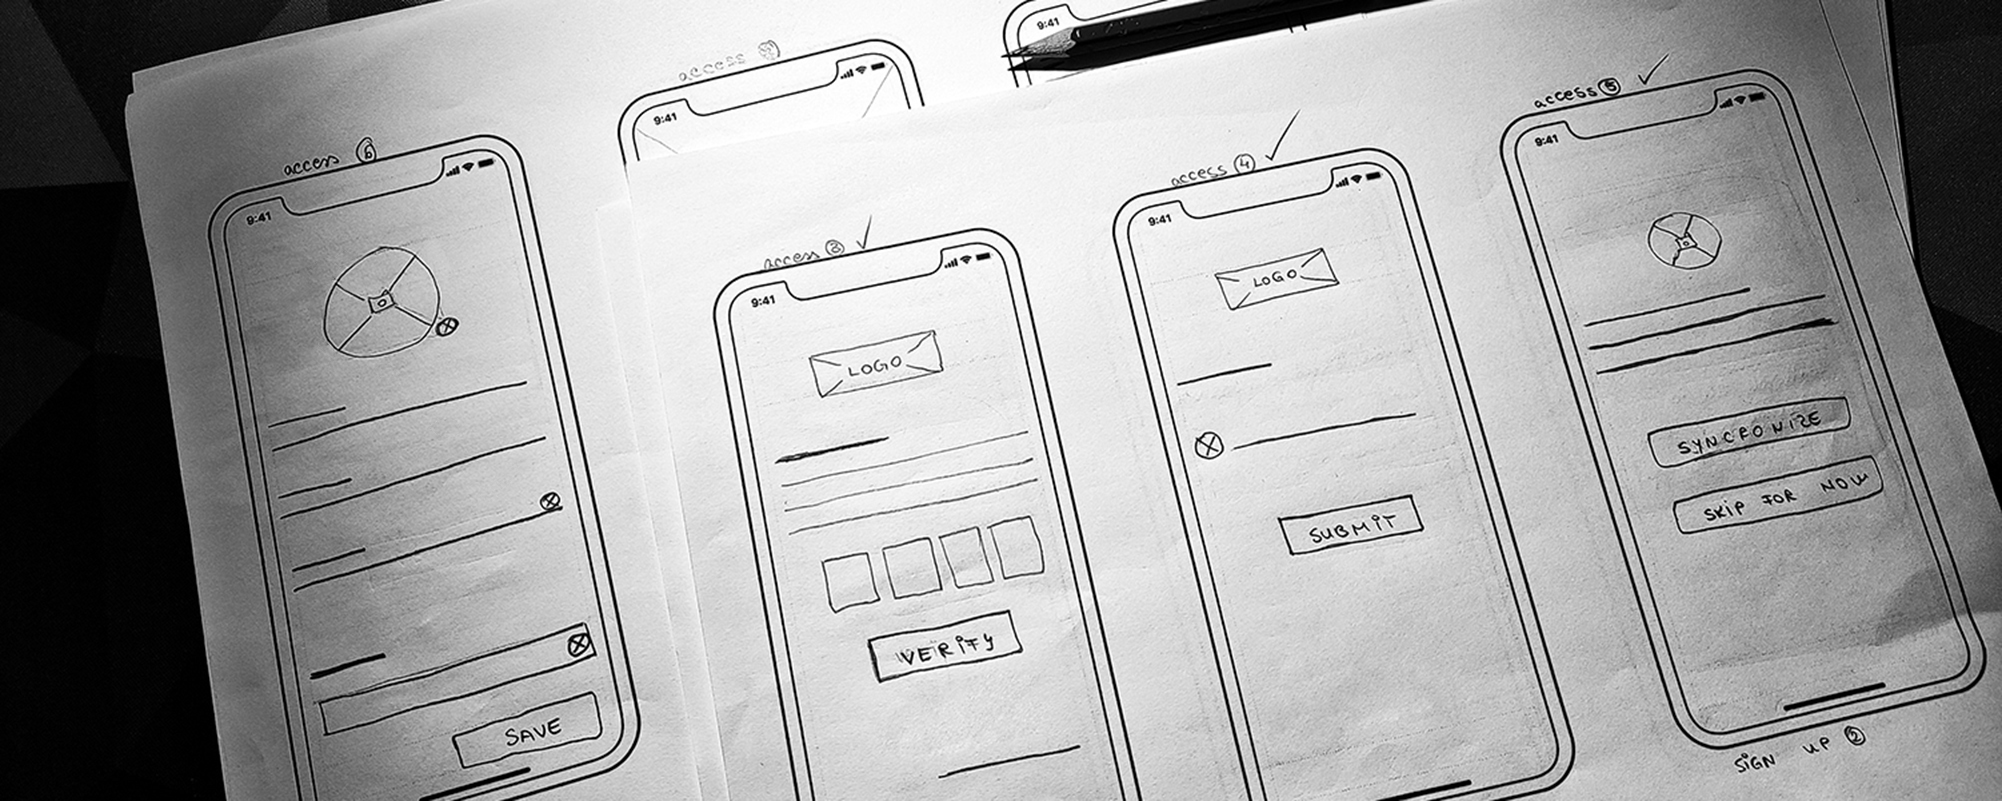 access 6
9:41
SAVE
access
9:41
9:41
access 3
9:41
LOGO
VERIFY
access 4
9:41
LOGO
SUBMIT
access 5
9:41
SYNCRONIZE
SKIP FOR NOW
SIGN UP 2